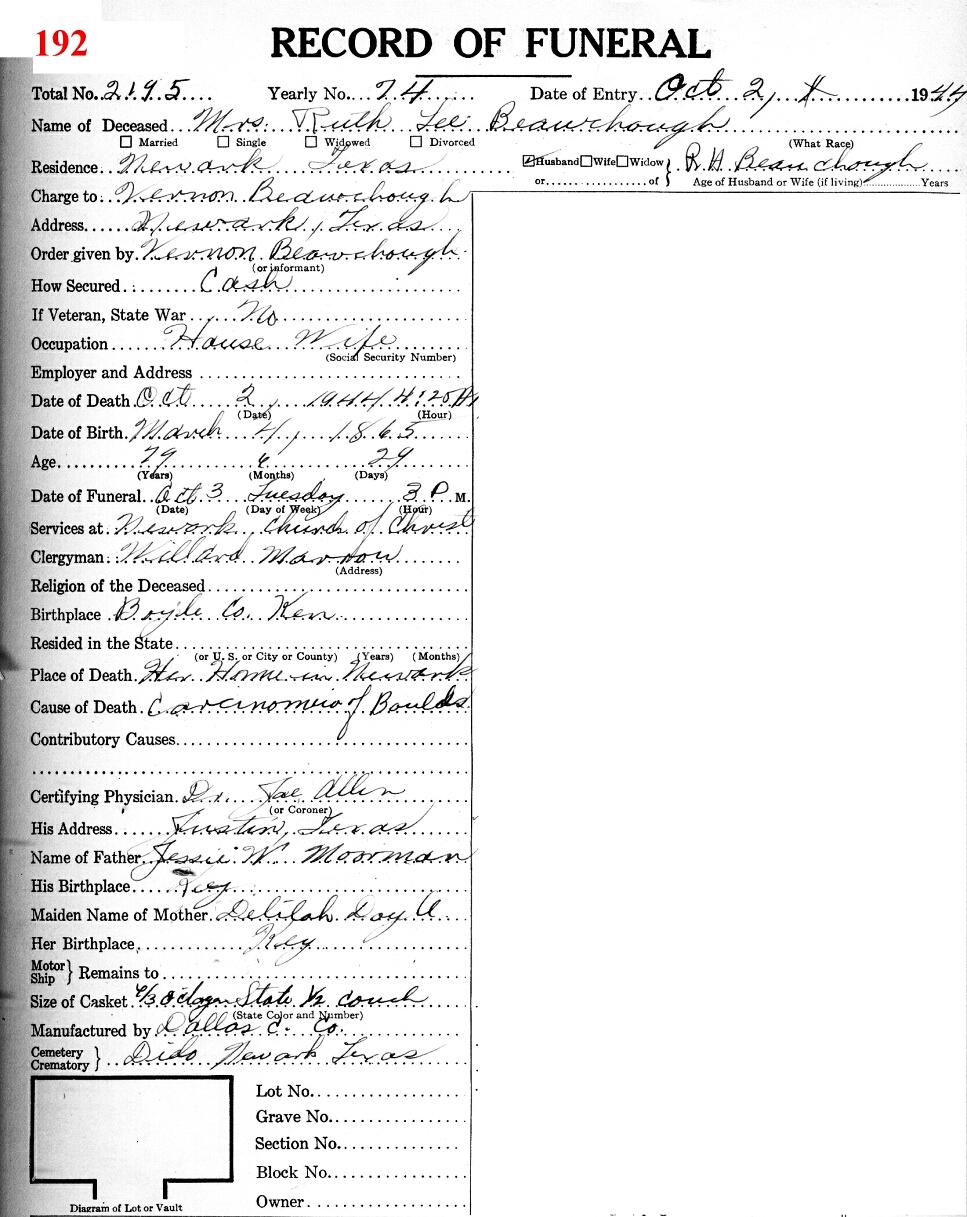 192
RECORD OF FUNERAL
Total No. 2195 Yearly No. 74 Date of Entry Oct 2, 1944
Name of Deceased Mrs. Ruth Lee Beauchough
☐ Married ☐ Single ☐ Widowed ☐ Divorced (What Race)
Residence Newark Texas ☑ Husband ☐ Wife ☐ Widow } R.H. Beauchough
or of } Age of Husband or Wife (if living) Years
Charge to Vernon Beauchough
Address Newark, Texas
Order given by Vernon Beauchough
(or informant)
How Secured Cash
If Veteran, State War No
Occupation House Wife
(Social Security Number)
Employer and Address
Date of Death Oct 2, 1944 4:20
(Date) (Hour)
Date of Birth March 4, 1865
Age 79 6 29
(Years) (Months) (Days)
Date of Funeral Oct 3 Tuesday 3 P. M.
(Date) (Day of Week) (Hour)
Services at Newark, Church of Christ
Clergyman Willard
(Address)
Religion of the Deceased
Birthplace Boyle Co. Ken
Resided in the State
(or U. S. or City or County) (Years) (Months)
Place of Death Her Home in Newark
Cause of Death of
Contributory Causes
Certifying Physician Dr. Joe Allen
(or Coroner)
His Address Justin, Texas
Name of Father Jessie W. Moorman
His Birthplace Key
Maiden Name of Mother Delilah
Her Birthplace Key
Motor Ship } Remains to
Size of Casket 6/3 Octagon State 1/2 couch
(State Color and Number)
Manufactured by Dallas C. Co.
Cemetery Crematory } Dido Newark Texas
Lot No.
Grave No.
Section No.
Block No.
Owner
Diagram of Lot or Vault